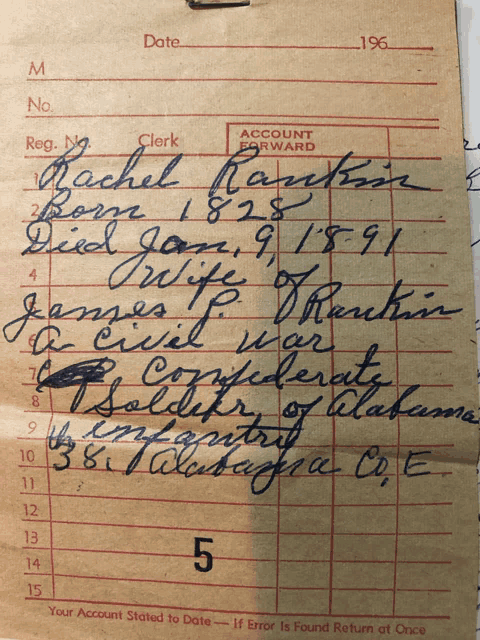 Date 196
M
No.
Reg. No. Clerk ACCOUNT FORWARD
1 Rachel Rankin
2 Born 1828
Died Jan, 9, 1891
4 Wife of
James P. Rankin
6 A Civil War
7 Confederate
8 Soldier, of Alabama
9 infantry
10 38, Alabama Co, E
11
12
13
5
14
15
Your Account Stated to Date — If Error Is Found Return at Once